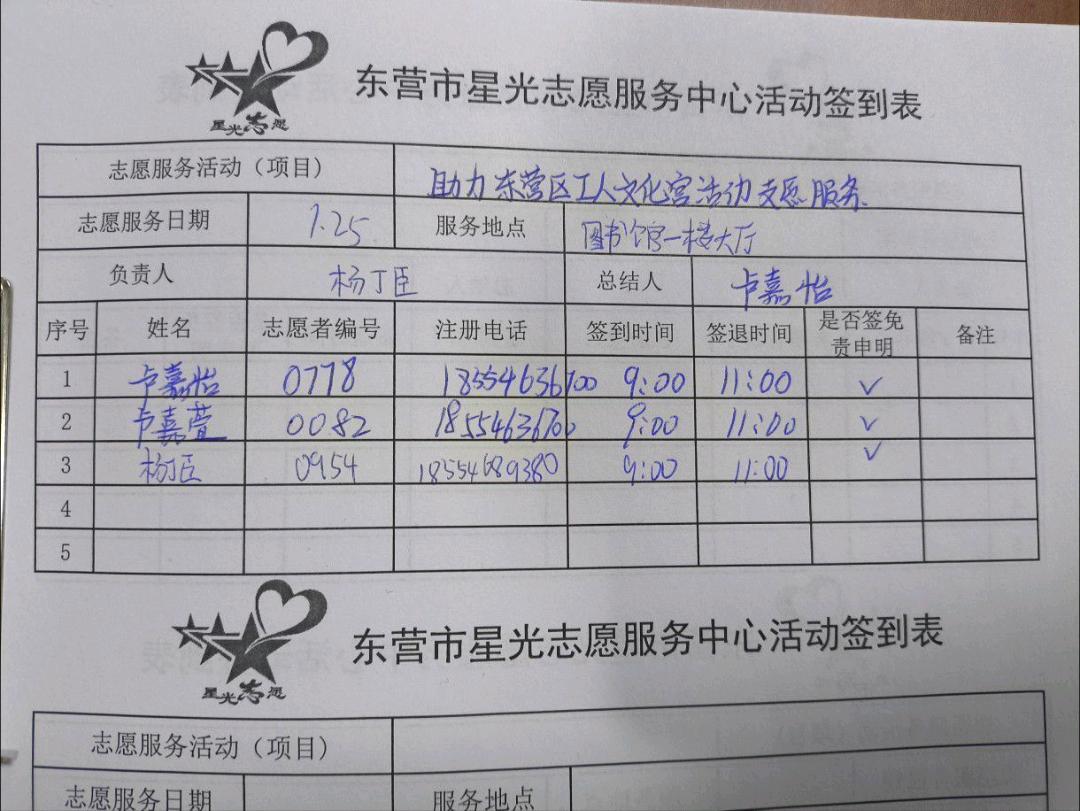 星光志愿
东营市星光志愿服务中心活动签到表
志愿服务活动（项目） 助力东营区工人文化宫活动支愿服务
志愿服务日期 1.25 服务地点 图书馆一楼大厅
负责人 杨丁臣 总结人 卢嘉怡
序号 姓名 志愿者编号 注册电话 签到时间 签退时间 是否签免责申明 备注
1 卢嘉怡 0778 18554636700 9:00 11:00 ✓
2 卢嘉萱 0082 18554636700 9:00 11:00 ✓
3 杨丁臣 0954 18554689380 9:00 11:00 ✓
4
5
星光志愿
东营市星光志愿服务中心活动签到表
志愿服务活动（项目）
志愿服务日期 服务地点